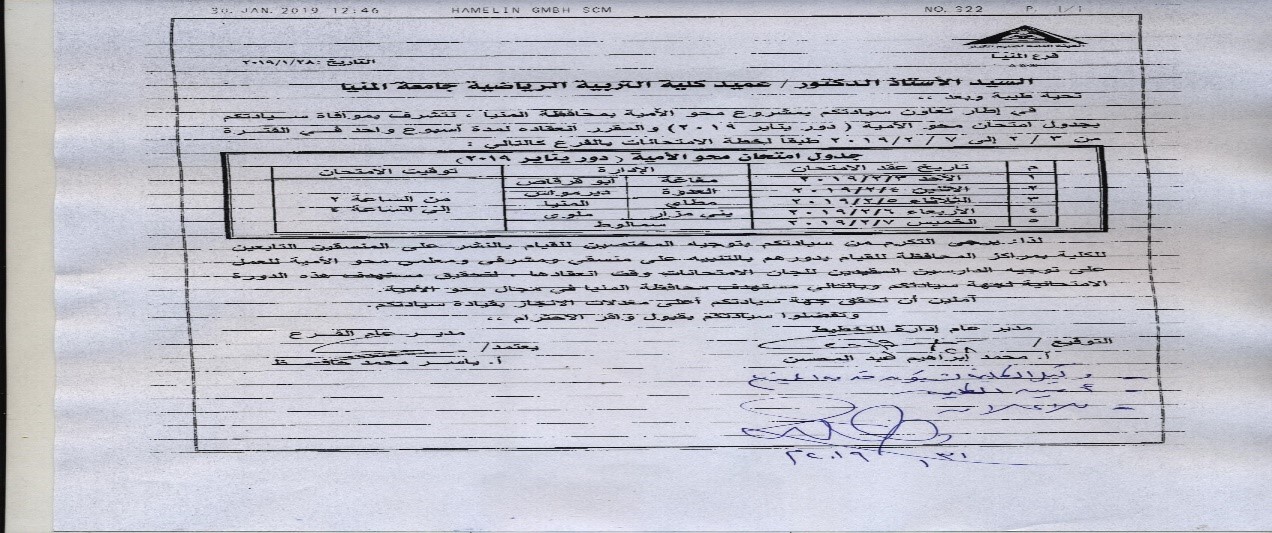 30. JAN. 2019 12:46 HAMELIN GMBH SCM NO. 322 P. 1/1
فرع المنيا
التاريخ: ٢٠١٩/١/٢٨
السيد الأستاذ الدكتور / عميد كلية التربية الرياضية جامعة المنيا
تحية طيبة وبعد ..
في إطار تعاون سيادتكم بمشروع محو الأمية بمحافظة المنيا ، نتشرف بموافاة سيادتكم
بجدول امتحان محو الأمية ( دور يناير ٢٠١٩ ) والمقرر انعقاده لمدة أسبوع واحد في الفترة
من ٢/٣ إلى ٢٠١٩/٢/٧ طبقا لخطة الامتحانات بالفرع كالتالي :
جدول امتحان محو الأمية ( دور يناير ٢٠١٩ )
م تاريخ عقد الامتحان الإدارة توقيت الامتحان
١ الأحد ٢٠١٩/٢/٣ مغاغة أبو قرقاص
٢ الاثنين ٢٠١٩/٢/٤ العدوة ديرمواس
٣ الثلاثاء ٢٠١٩/٢/٥ مطاي المنيا
٤ الأربعاء ٢٠١٩/٢/٦ بني مزار ملوي
٥ الخميس ٢٠١٩/٢/٧ سمالوط
من الساعة ٢
إلى الساعة ٤
لذا: يرجى التكرم من سيادتكم بتوجيه المختصين للقيام بالنشر على المنسقين التابعين
للكلية بمراكز المحافظة للقيام بدورهم بالتنبيه على منسقي ومشرفي ومعلمي محو الأمية للعمل
على توجيه الدارسين المقيدين للجان الامتحانات وقت انعقادها لتحقيق مستهدف هذه الدورة
الامتحانية لجهة سيادتكم وبالتالي مستهدف محافظة المنيا في مجال محو الأمية.
آملين أن تحقق جهة سيادتكم أعلى معدلات الانجاز بقيادة سيادتكم.
وتفضلوا سيادتكم بقبول وافر الاحترام ،،
مدير عام إدارة التخطيط مدير عام الفرع
التوقيع / يعتمد/
أ. محمد إبراهيم عبد المحسن أ. ياسر محمد حافظ